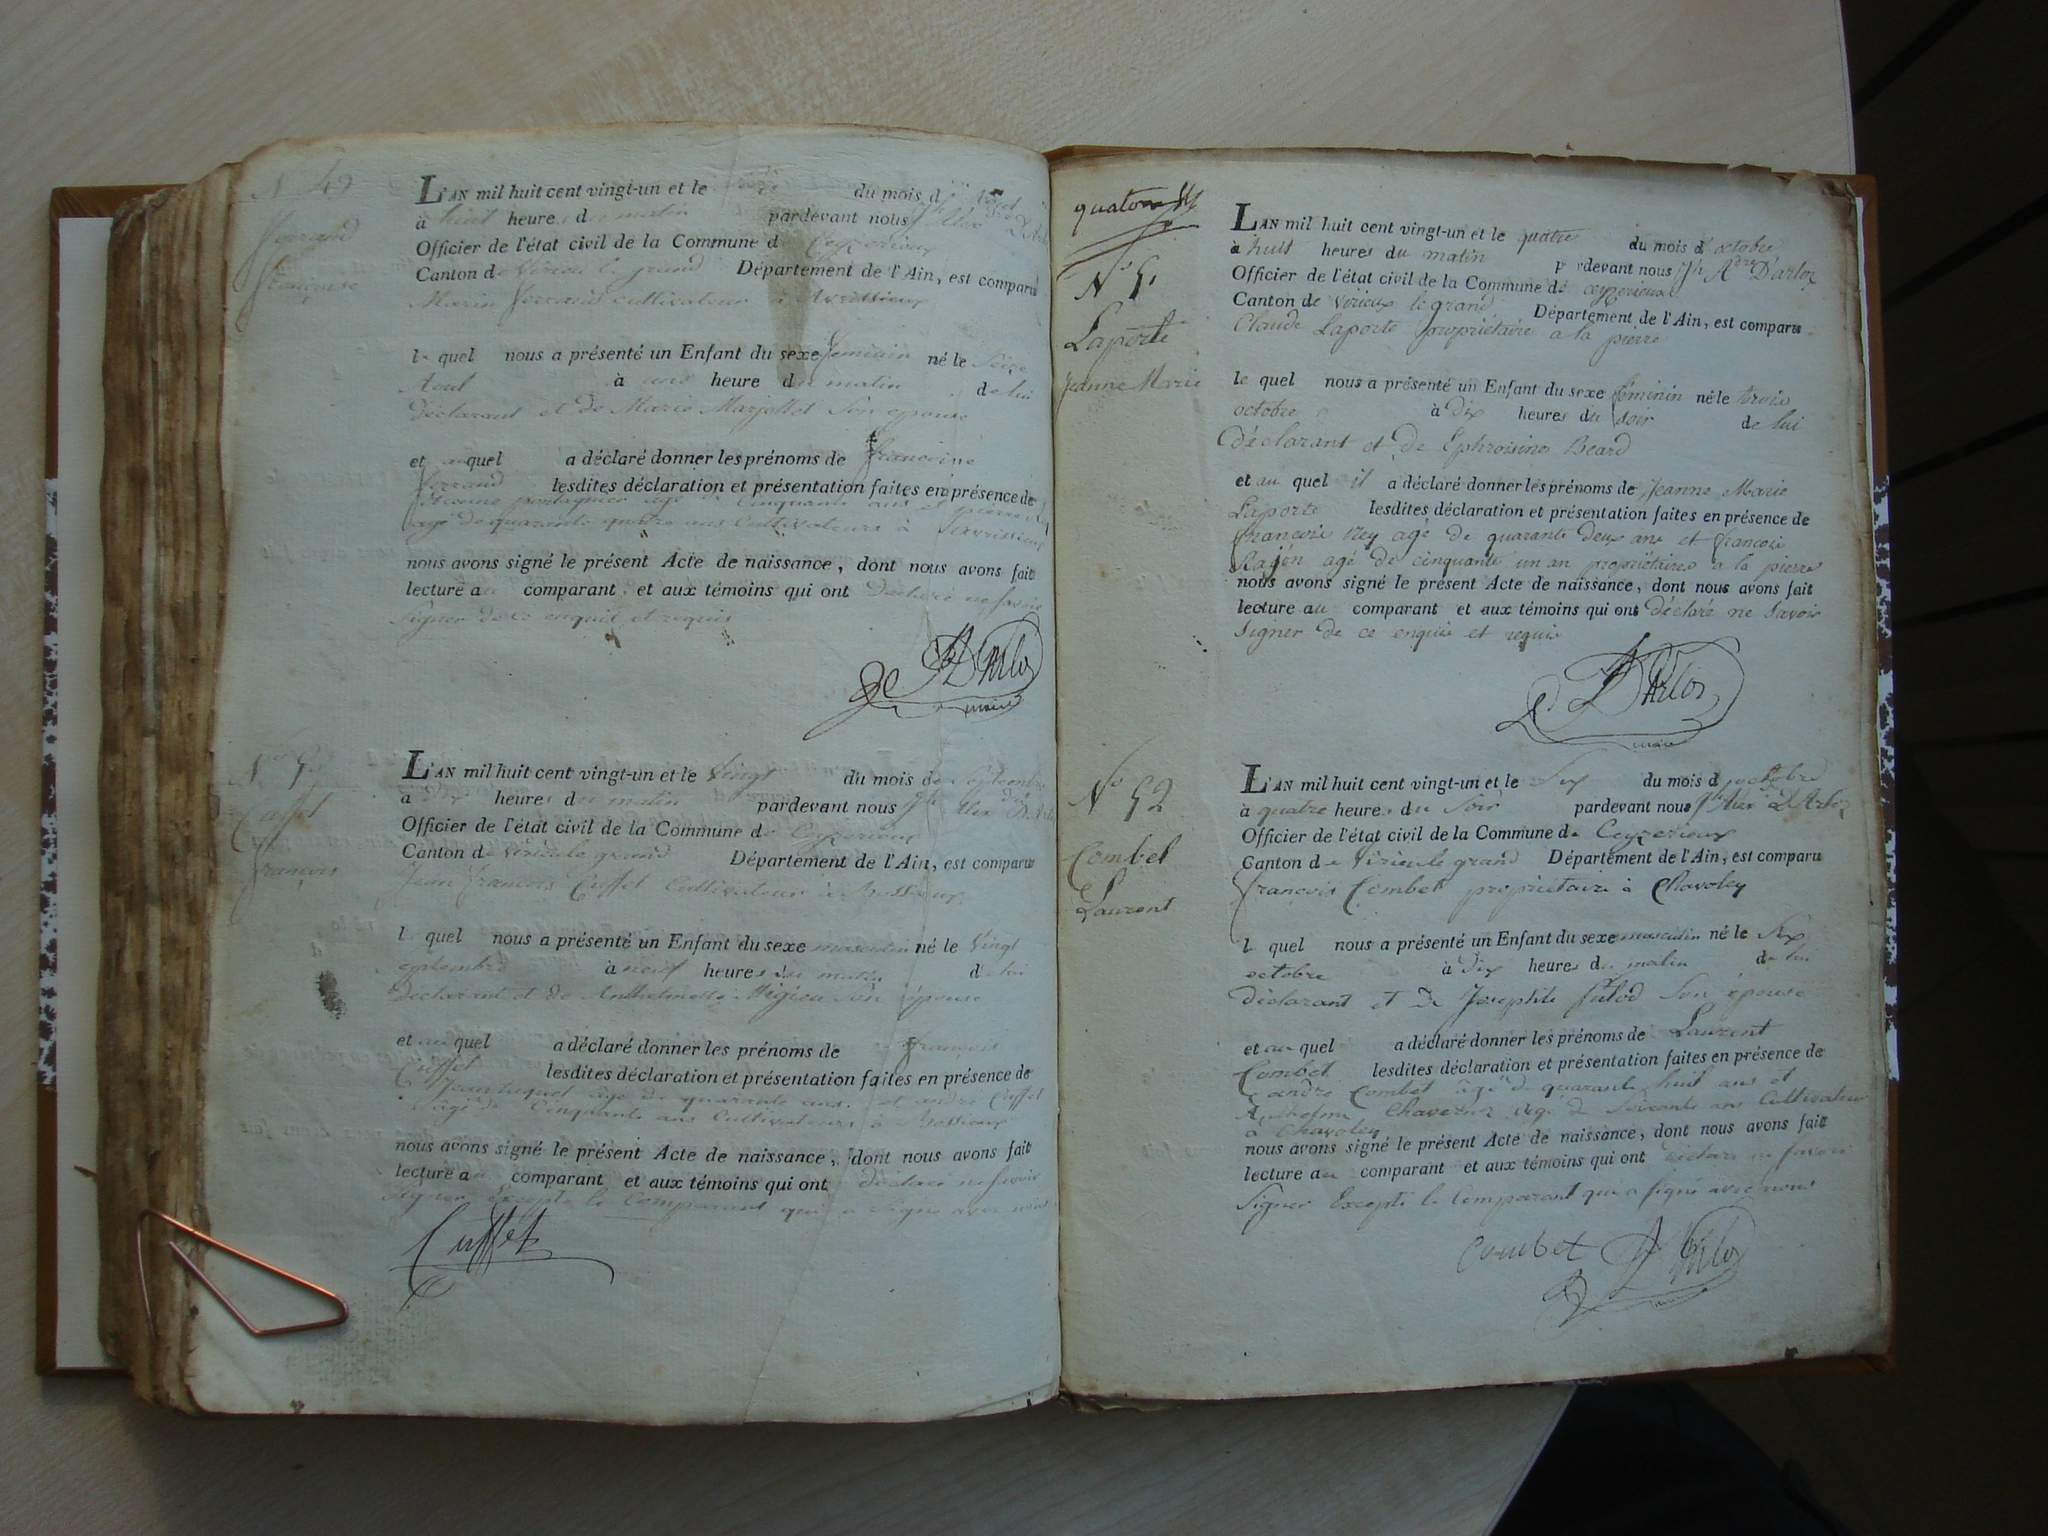 N 49
Verrand
françoise
L'AN mil huit cent vingt-un et le seize du mois d'aout
à huit heures du matin pardevant nous Jh Alex dre D'Arloz
Officier de l'état civil de la Commune de Ceyzerieux
Canton de Virieu le grand Département de l'Ain, est comparu
Marin Verrand cultivateur à Avrissieux
le quel nous a présenté un Enfant du sexe feminin né le Seize
Aout à une heure du matin de lui
déclarant et de Marie Marjollet Son épouse
et auquel a déclaré donner les prénoms de françoise
Verrand lesdites déclaration et présentation faites en présence de
agé de cinquante ans et pierre
agé de quarante quatre ans Cultivateurs à Avrissieux
nous avons signé le présent Acte de naissance, dont nous avons fait
lecture au comparant et aux témoins qui ont déclaré ne savoir
signer de ce enquis et requis
D'Arloz
maire
Cuffet
françois
L'AN mil huit cent vingt-un et le Vingt du mois de septembre
à dix heures du matin pardevant nous Jh Alex dre D'Arloz
Officier de l'état civil de la Commune de Ceyzerieux
Canton de Virieu le grand Département de l'Ain, est comparu
Jean françois Cuffet Cultivateur à Bossieux
le quel nous a présenté un Enfant du sexe masculin né le Vingt
septembre à neuf heures du matin de lui
déclarant et de Anthelmette Migieu Son épouse
et auquel a déclaré donner les prénoms de françois
Cuffet lesdites déclaration et présentation faites en présence de
Jean agé de quarante ans et andré Cuffet
agé de Cinquante ans Cultivateurs à Bossieux
nous avons signé le présent Acte de naissance, dont nous avons fait
lecture au comparant et aux témoins qui ont déclaré ne savoir
signer Excepté le Comparant qui a signé avec nous
Cuffet
No 51
Laporte
Jeanne Marie
L'AN mil huit cent vingt-un et le quatre du mois d'octobre
à huit heures du matin pardevant nous Jh Adre D'arloz
Officier de l'état civil de la Commune de ceyzerieux
Canton de virieux le grand Département de l'Ain, est comparu
Claude Laporte propriétaire a la pierre
le quel nous a présenté un Enfant du sexe féminin né le trois
octobre à dix heures du soir de lui
déclarant et de Ephroisine Beard
et au quel il a déclaré donner les prénoms de Jeanne Marie
Laporte lesdites déclaration et présentation faites en présence de
françois Rey agé de quarante deux ans et françois
agé de cinquante un an propriétaires a la pierre
nous avons signé le présent Acte de naissance, dont nous avons fait
lecture au comparant et aux témoins qui ont déclaré ne savoir
signer de ce enquis et requis
D'Arloz
maire
No 52
Combet
Laurent
L'AN mil huit cent vingt-un et le Six du mois d'octobre
à quatre heures du Soir pardevant nous Jh Alex D'Arloz
Officier de l'état civil de la Commune de Ceyzerieux
Canton de Virieu le grand Département de l'Ain, est comparu
françois Combet propriétaire à Chavoley
le quel nous a présenté un Enfant du sexe masculin né le Six
octobre à dix heures du matin de lui
déclarant et de Josephte Son épouse
et au quel a déclaré donner les prénoms de Laurent
Combet lesdites déclaration et présentation faites en présence de
andré Combet agé de quarante huit ans et
Anthelme agé de Soixante ans Cultivateurs
à Chavoley
nous avons signé le présent Acte de naissance, dont nous avons fait
lecture au comparant et aux témoins qui ont déclaré ne savoir
Signer Excepté le Comparant qui a signé avec nous
Combet D'Arloz
maire